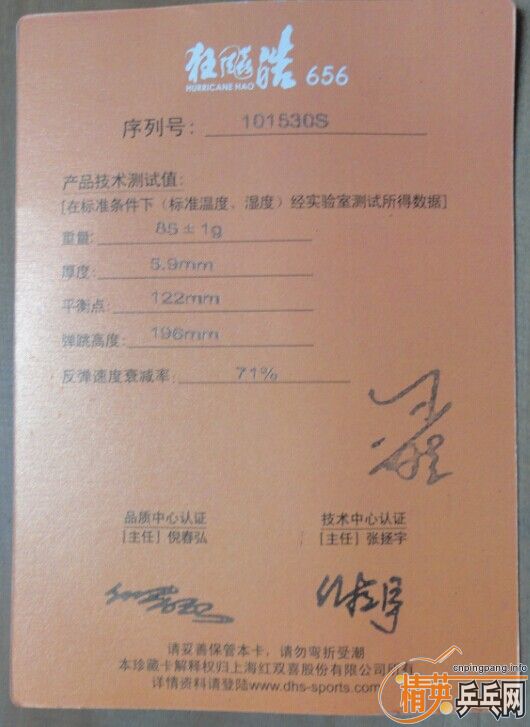 狂飚皓 656
HURRICANE HAO
序列号: 101530S
产品技术测试值:
[在标准条件下(标准温度、湿度)经实验室测试所得数据]
重量: 85±1g
厚度: 5.9mm
平衡点: 122mm
弹跳高度: 196mm
反弹速度衰减率: 71%
品质中心认证 技术中心认证
[主任] 倪春弘 [主任] 张拯宇
请妥善保管本卡,请勿弯折受潮
本珍藏卡解释权归上海红双喜股份有限公司所有
详情资料请登陆www.dhs-sports.com
cnpingpang.info
精英乒乓网